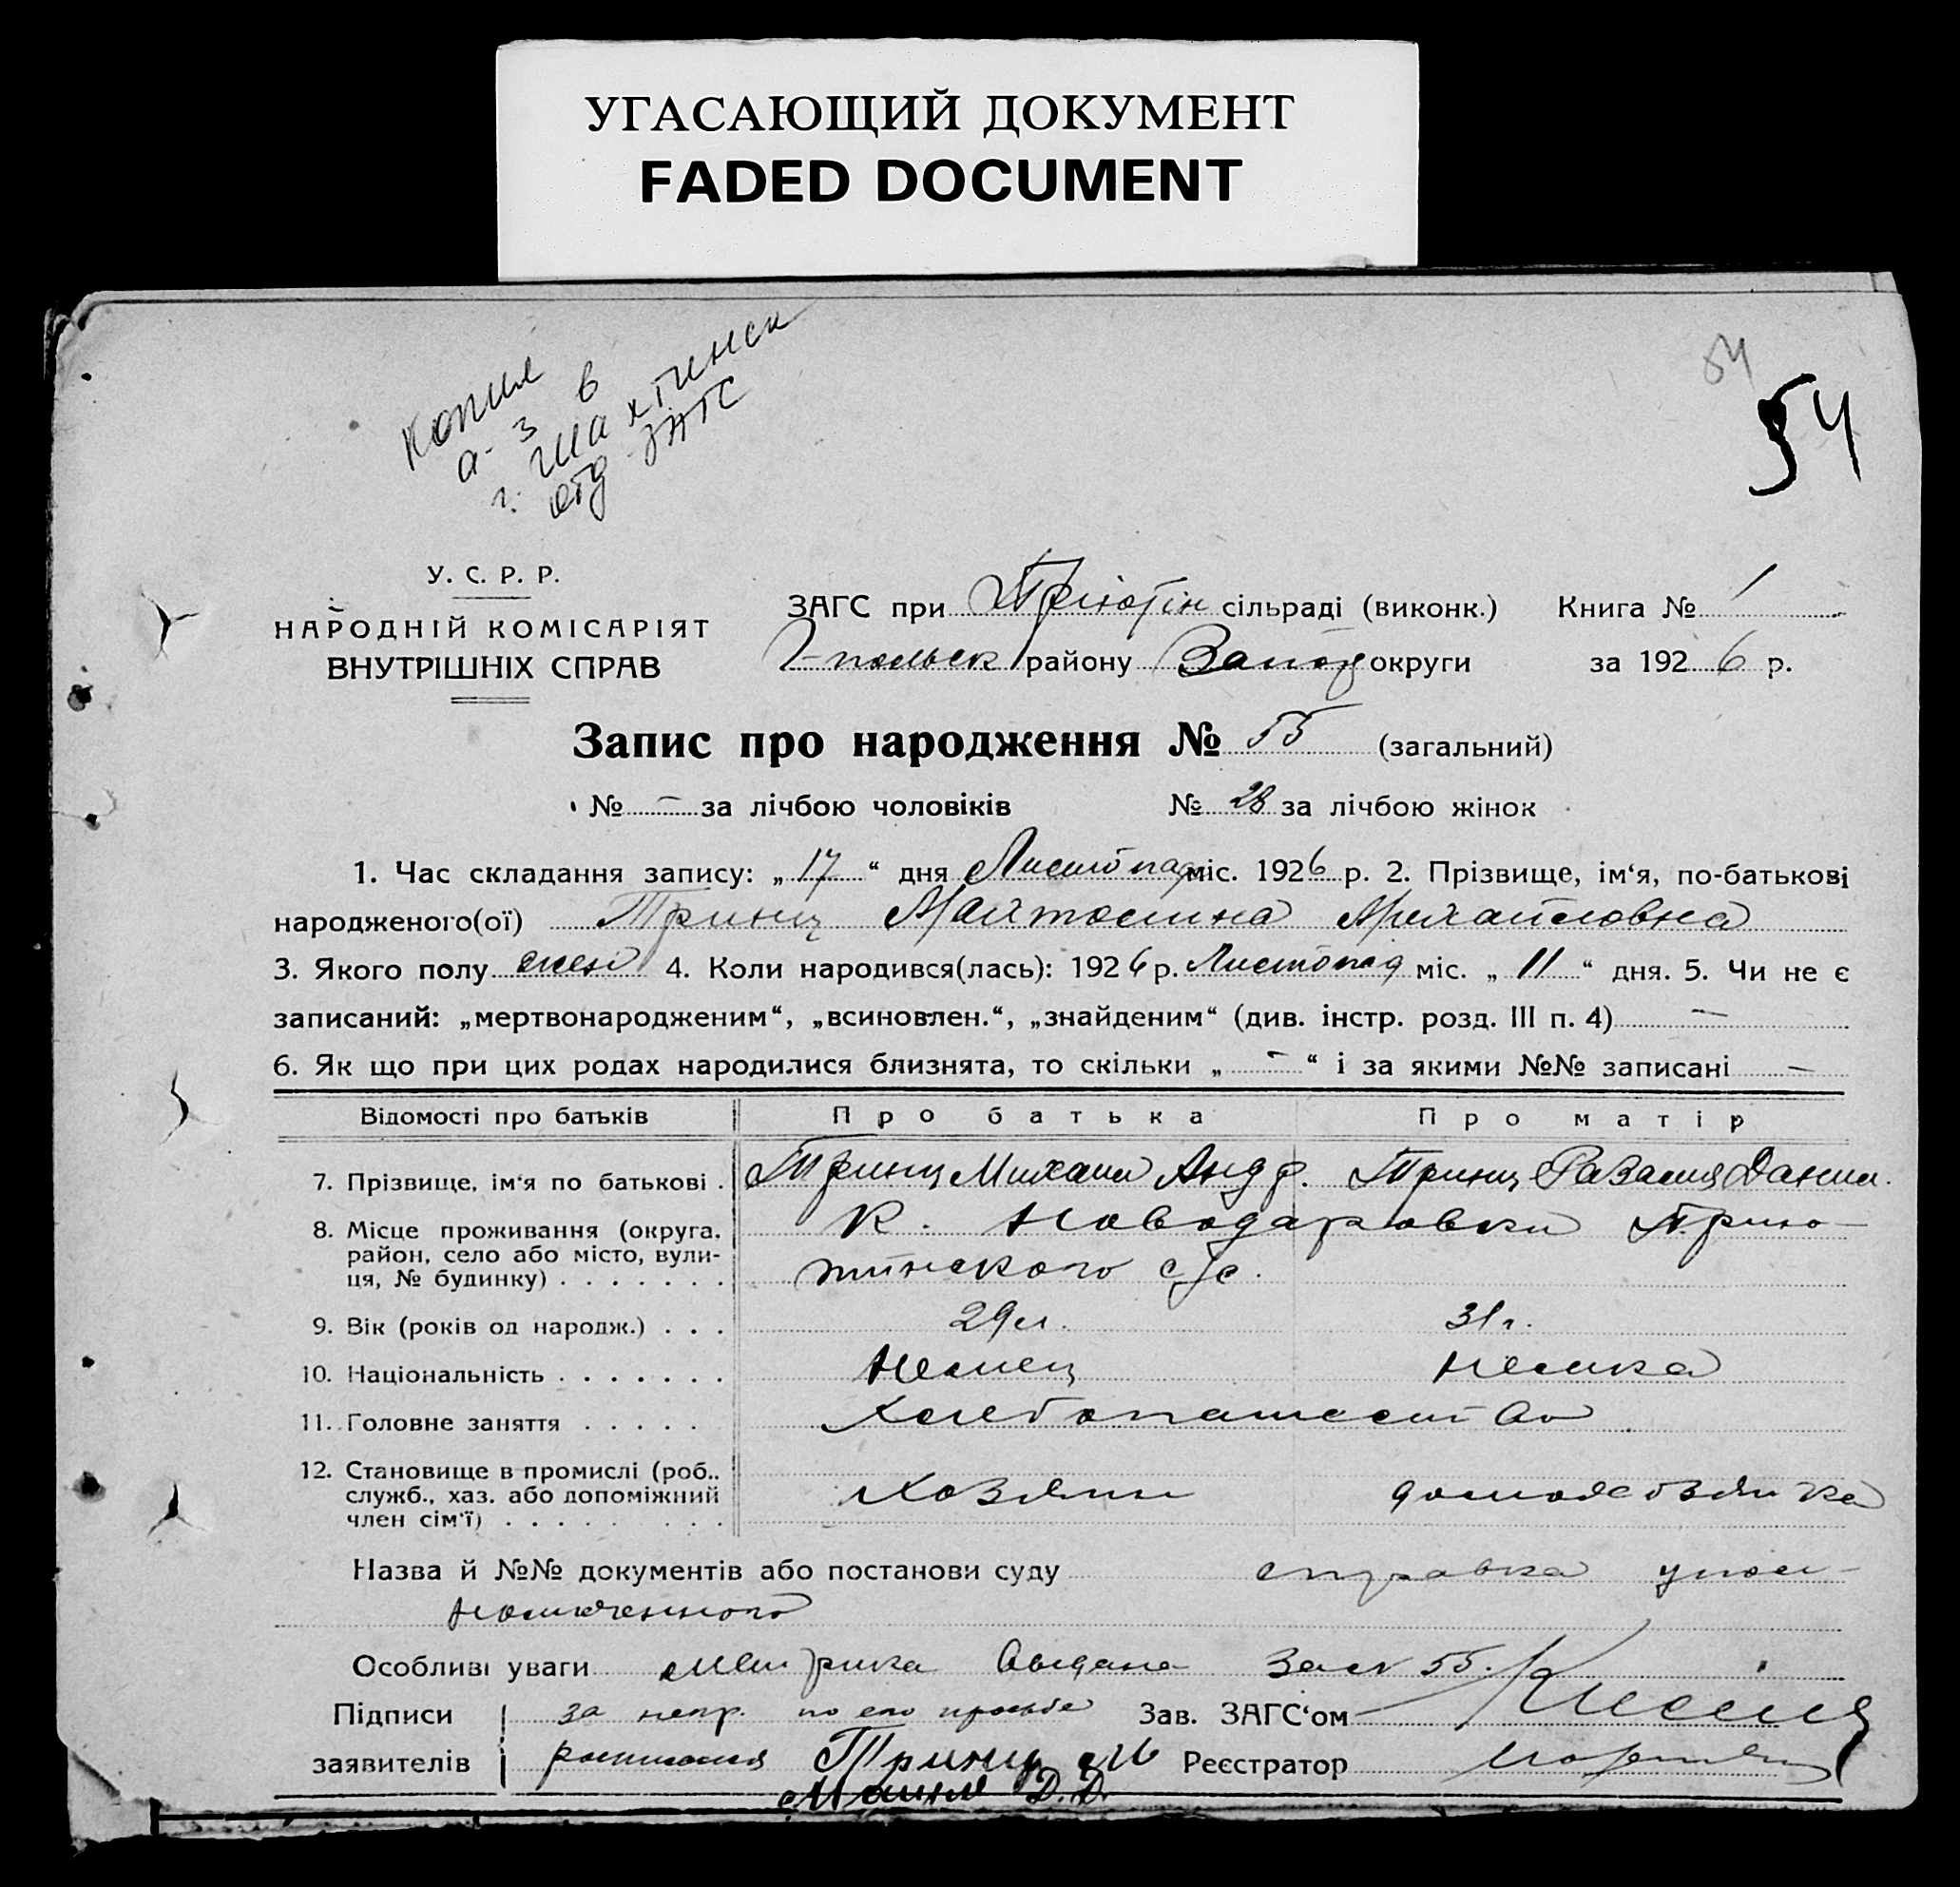 УГАСАЮЩИЙ ДОКУМЕНТ
FADED DOCUMENT
54
54
Копия
а-з в
г. Шахтинск
отд ЗАГС
У. С. Р. Р.
НАРОДНІЙ КОМІСАРІЯТ
ВНУТРІШНІХ СПРАВ
ЗАГС при Пріютін сільраді (виконк.) Книга № 1
польск району Запор округи за 1926 р.
Запис про народження № 55 (загальний)
№ – за лічбою чоловіків № 28 за лічбою жінок
1. Час складання запису: „17“ дня Листопад міс. 1926 р. 2. Прізвище, ім‘я, по-батькові
народженого(ої) Принц Михайловна
3. Якого полу жен 4. Коли народився(лась): 1926 р. Листопад міс. „11“ дня. 5. Чи не є
записаний: „мертвонародженим“, „всиновлен.“, „знайденим“ (див. інстр. розд. III п. 4) –
6. Як що при цих родах народилися близнята, то скільки „ – “ і за якими №№ записані –
Відомості про батьків Про батька Про матір
7. Прізвище, ім‘я по батькові . Принц Михаил Андр. Принц Данил.
8. Місце проживання (округа, район, село або місто, вулиця, № будинку) . . . . . . . К. Новодаровка Прию-
тинского с/с.
9. Вік (років од народж.) . . . 29 л. 31 г.
10. Національність . . . . . . . Немец Немка
11. Головне заняття . . . . . Хлебопашество
12. Становище в промислі (роб.,
служб., хаз. або допоміжний
член сім‘ї) . . . . . . . . Хозяин домохозяйка
Назва й №№ документів або постанови суду справка упол-
номоченного
Особливі уваги метрика выдана за № 55.
Підписи за непр. по его просьбе Зав. ЗАГС‘ом
заявителів росписался Принц Реєстратор
Д. Д.